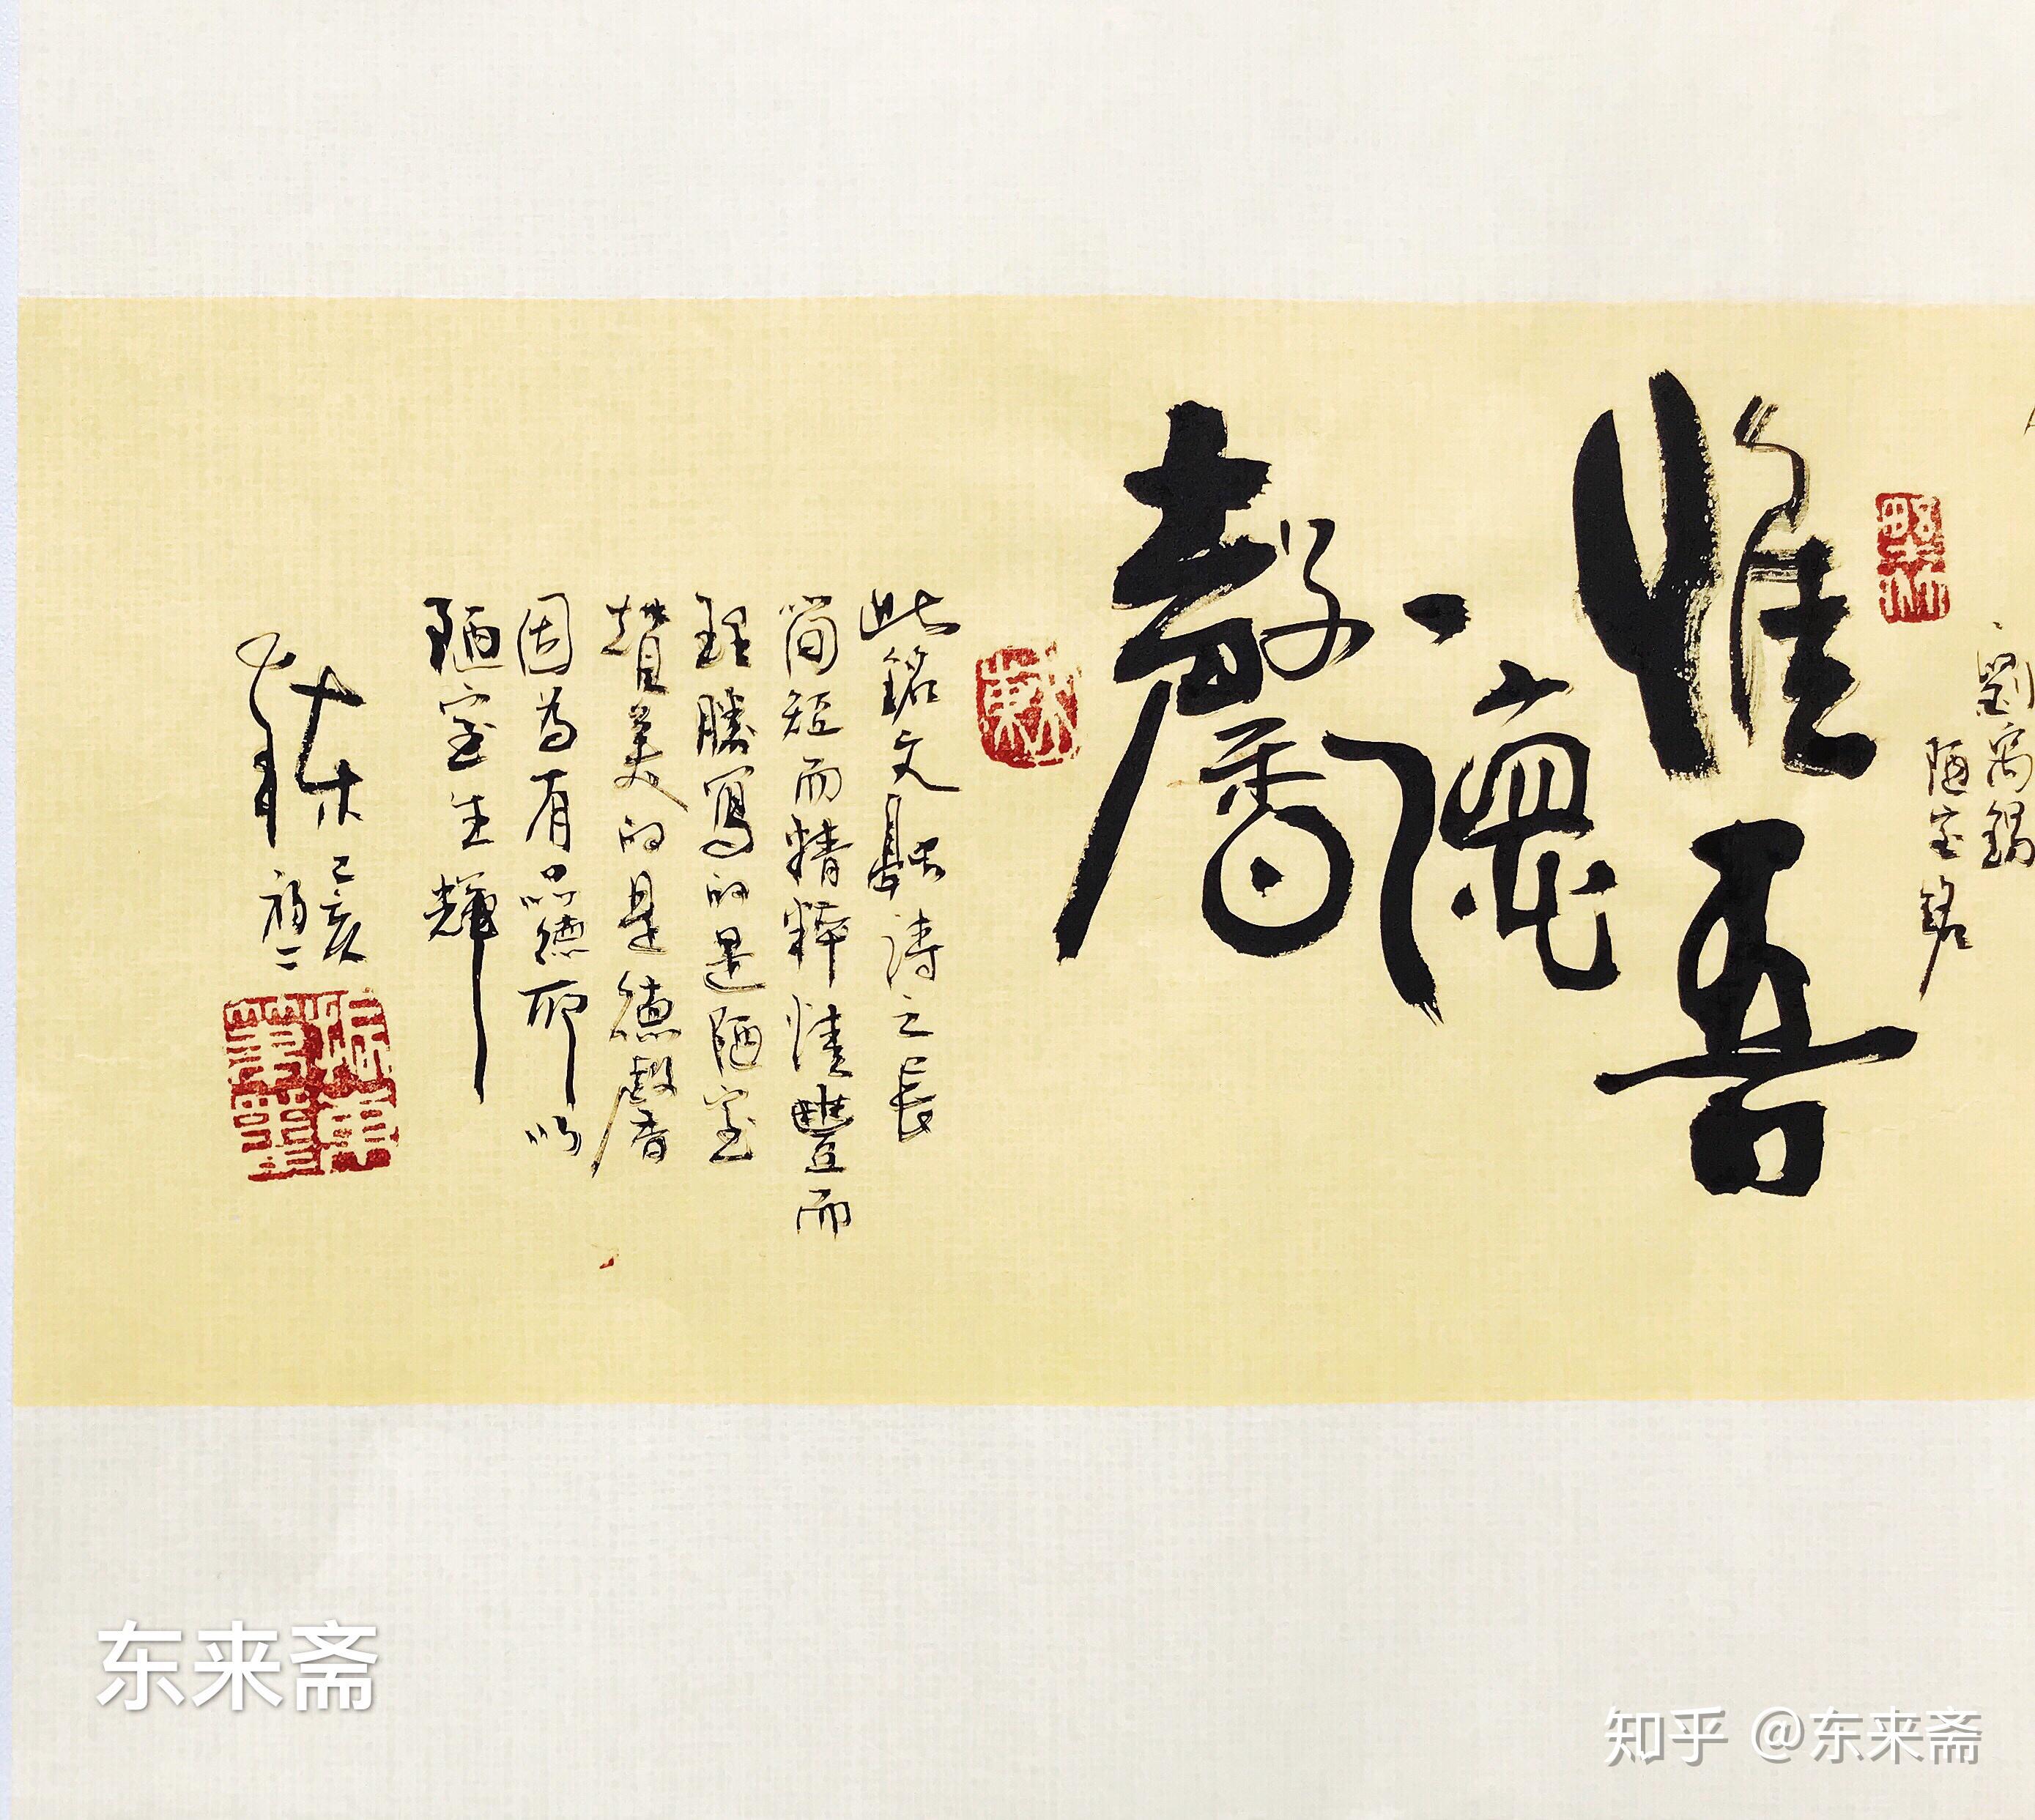 劉禹錫
陋室銘
惟吾
德
馨
此銘文融詩之長
簡短而精粹情豐而
理勝寫的是陋室
讚美的是德馨
因為有品德所以
陋室生輝
己亥
东来斋
知乎 @东来斋